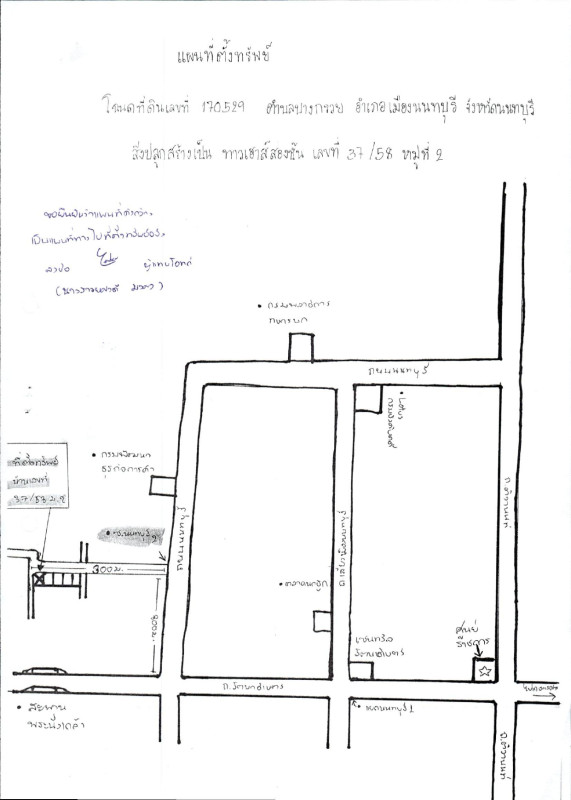 แผนที่ตั้งทรัพย์
โฉนดที่ดินเลขที่ 170529 ตำบลบางกรวย อำเภอเมืองนนทบุรี จังหวัดนนทบุรี
สิ่งปลูกสร้างเป็น ทาวเฮาส์สองชั้น เลขที่ 37/58 หมู่ที่ 2
ขอยืนยันว่าแผนที่ดังกล่าว
เป็นแผนที่ทางไปที่ตั้งทรัพย์จริง
ลงชื่อ ผู้แทนโจทก์
ถนนนนทบุรี
Lotus
กรมพัฒนา
ธุรกิจการค้า
ที่ตั้งทรัพย์
บ้านเลขที่
37/58 ม.2
300 ม.
ถนนนนทบุรี
ถ.เลี่ยงเมืองนนทบุรี
ถ.ติวานนท์
เซ็นทรัล
รัตนาธิเบศร์
ศูนย์
ราชการ
ถ.รัตนาธิเบศร์
สะพาน
พระนั่งเกล้า
ถ.ติวานนท์